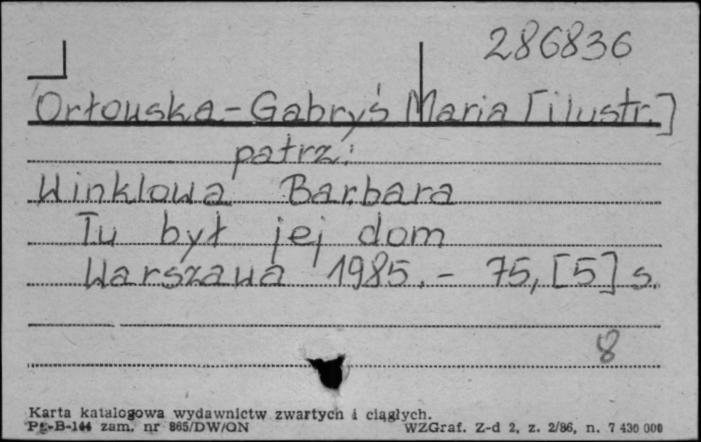 286836
Orłowska-Gabryś Maria [ilustr.]
patrz:
Winklowa Barbara
Tu był jej dom
Warszawa 1985.- 75, [5] s.
8
Karta katalogowa wydawnictw zwartych i ciągłych.
Pt-B-144 zam. nr 865/DW/ON WZGraf. Z-d 2, z. 2/86, n. 7 430 000